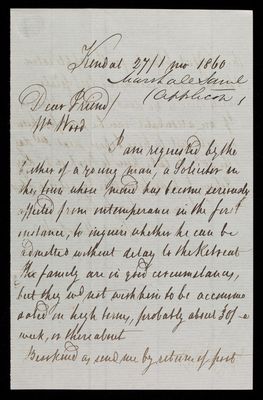 Kendal 27/1 mo 1860
Marshall Saml
(Applicon)
Dear Friend/
Wm Wood
I am requested by the
father of a young man, a Solicitor in
this town whose mind has become seriously
affected from intemperance in the first
instance, to inquire whether he can be
admitted without delay to the Retreat
The family are in good circumstances,
but they wd not wish him to be accommo
dated on high terms, probably about 30/- a
week, or thereabout
Be so kind as send me by return of post